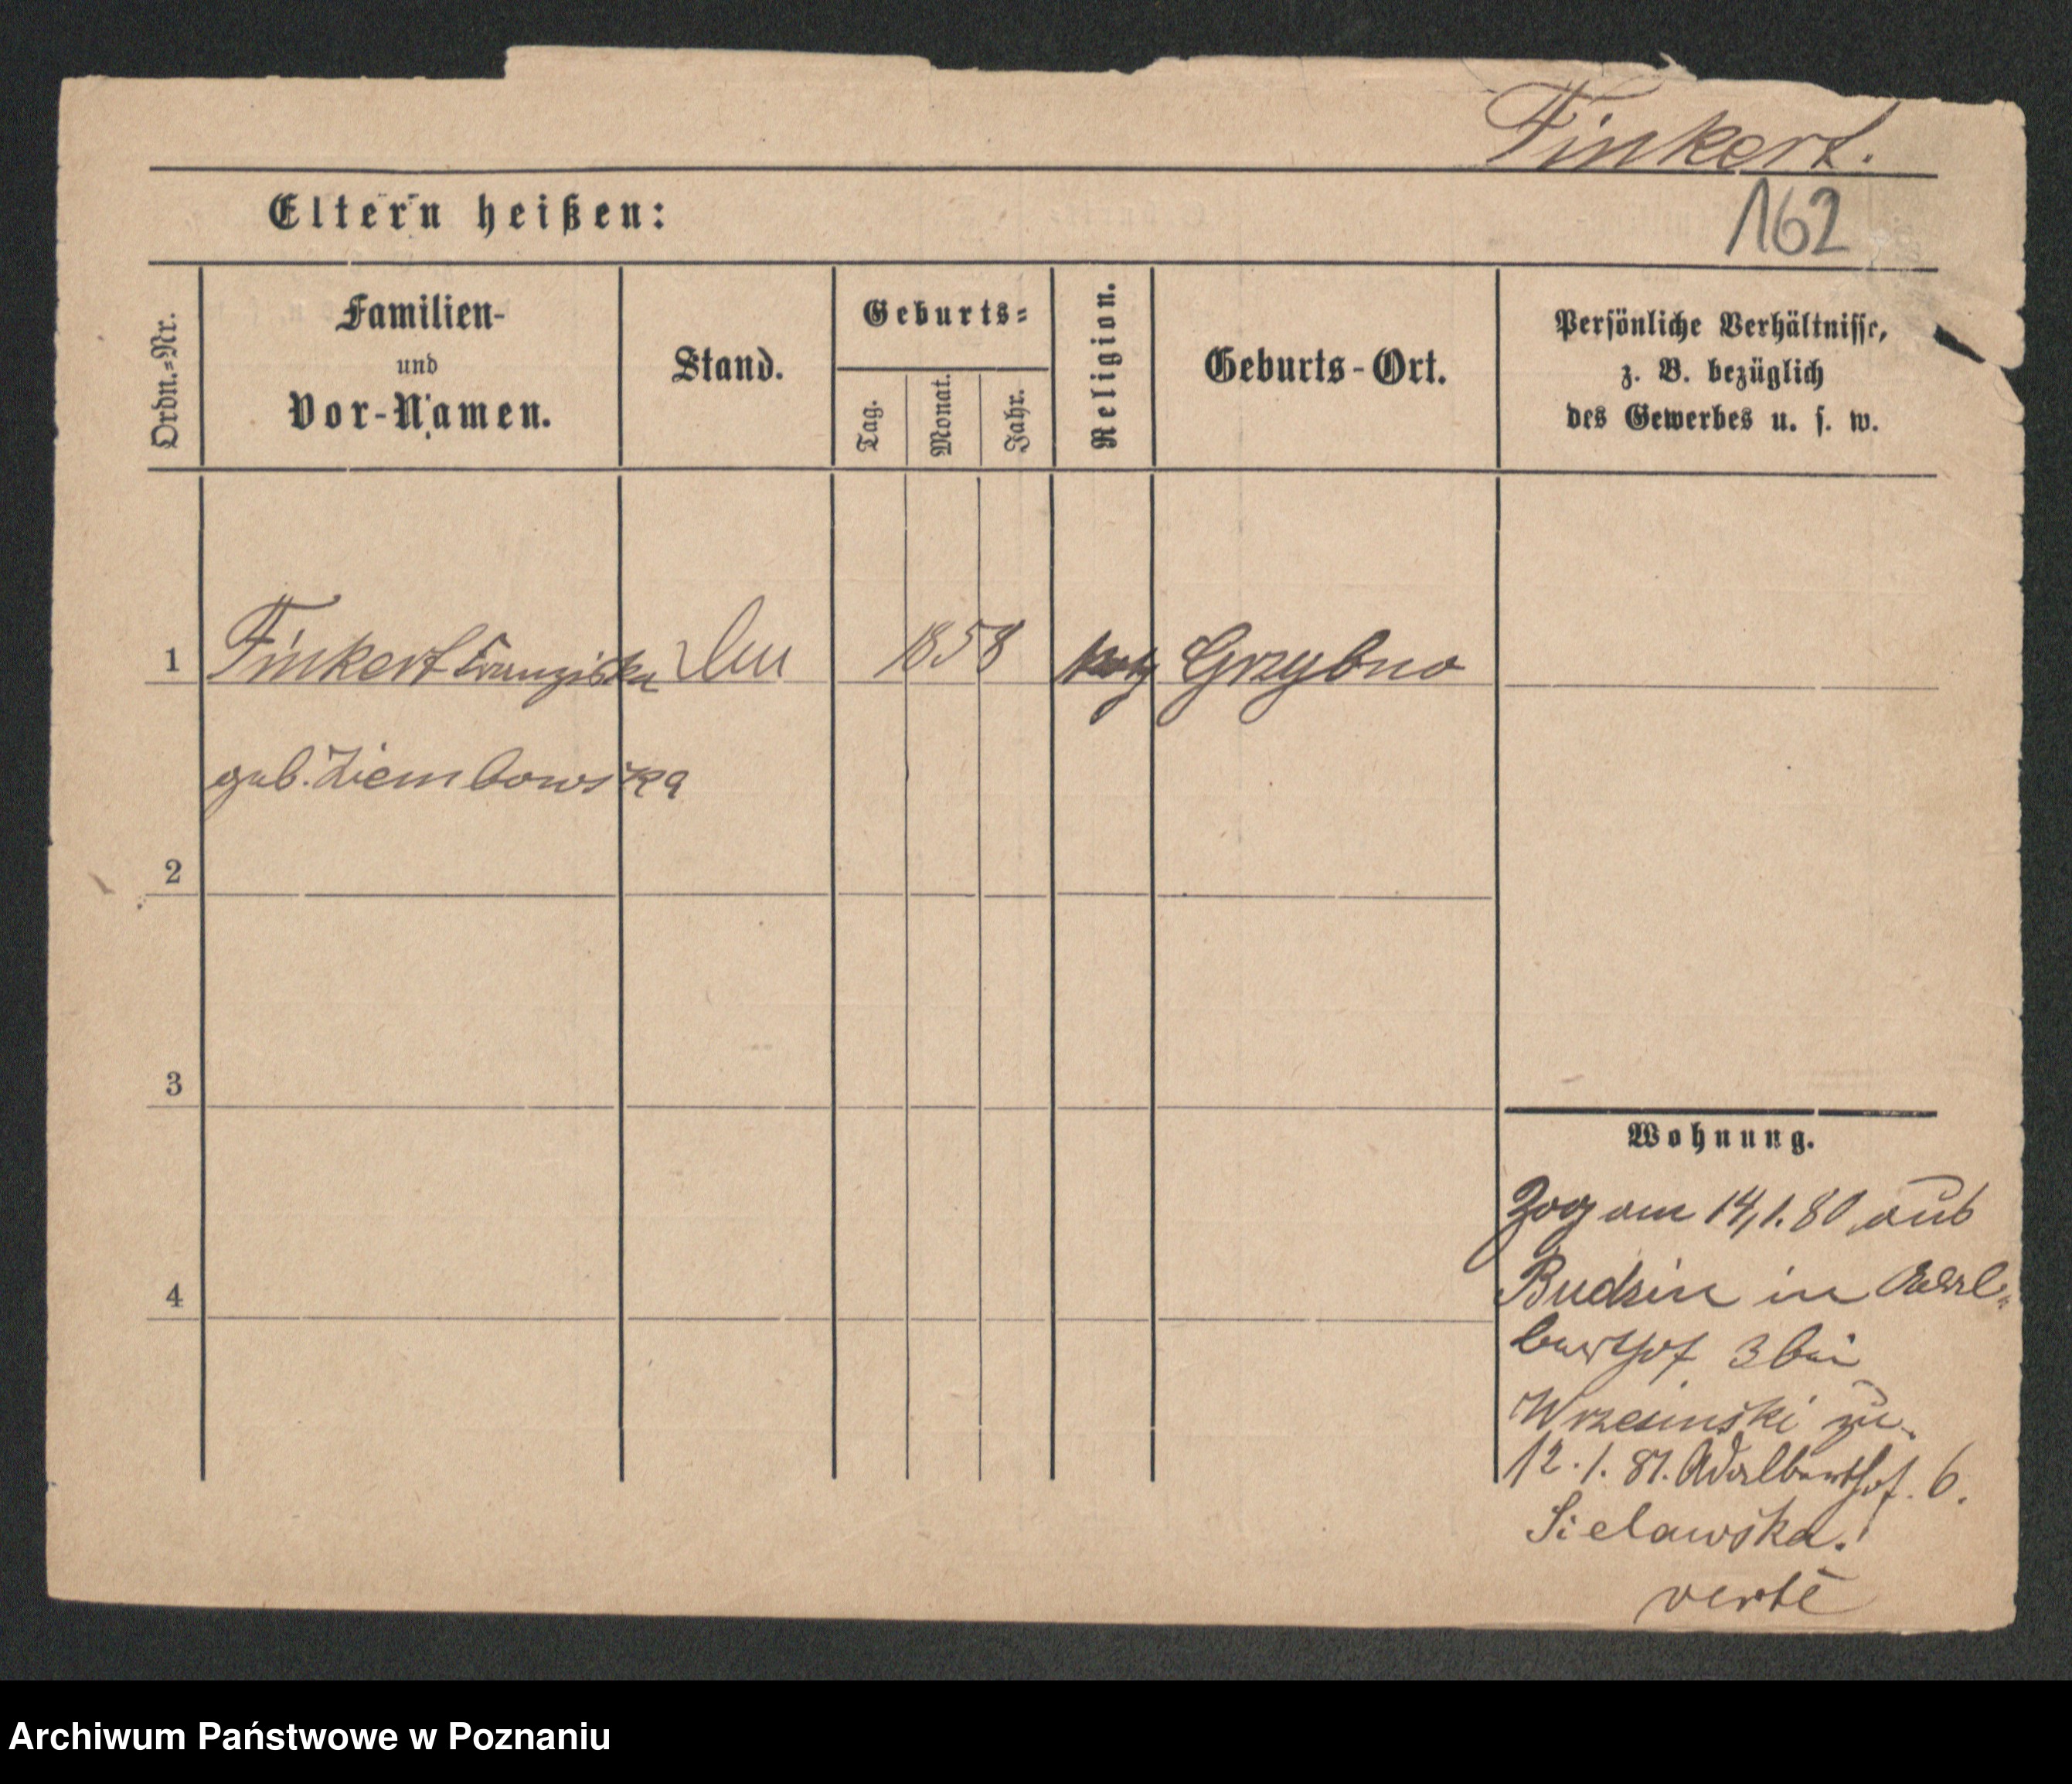 Finkert.
162
Eltern heißen:
Ordn.=Nr.
Familien-
und
Vor-Namen.
Stand.
Geburts=
Tag.
Monat.
Jahr.
Religion.
Geburts-Ort.
Persönliche Verhältnisse,
z. B. bezüglich
des Gewerbes u. s. w.
1 Finkert Franziska 1858 kath Grzybno
geb. Ziembowska
2
3
4
Wohnung.
Zog am 14/1.80 aus
Budsin in Adal=
berthof 3 bei
Wrzesinski zu.
12.1.81. Adalberthof. 6.
Sielawska.
verte
Archiwum Państwowe w Poznaniu